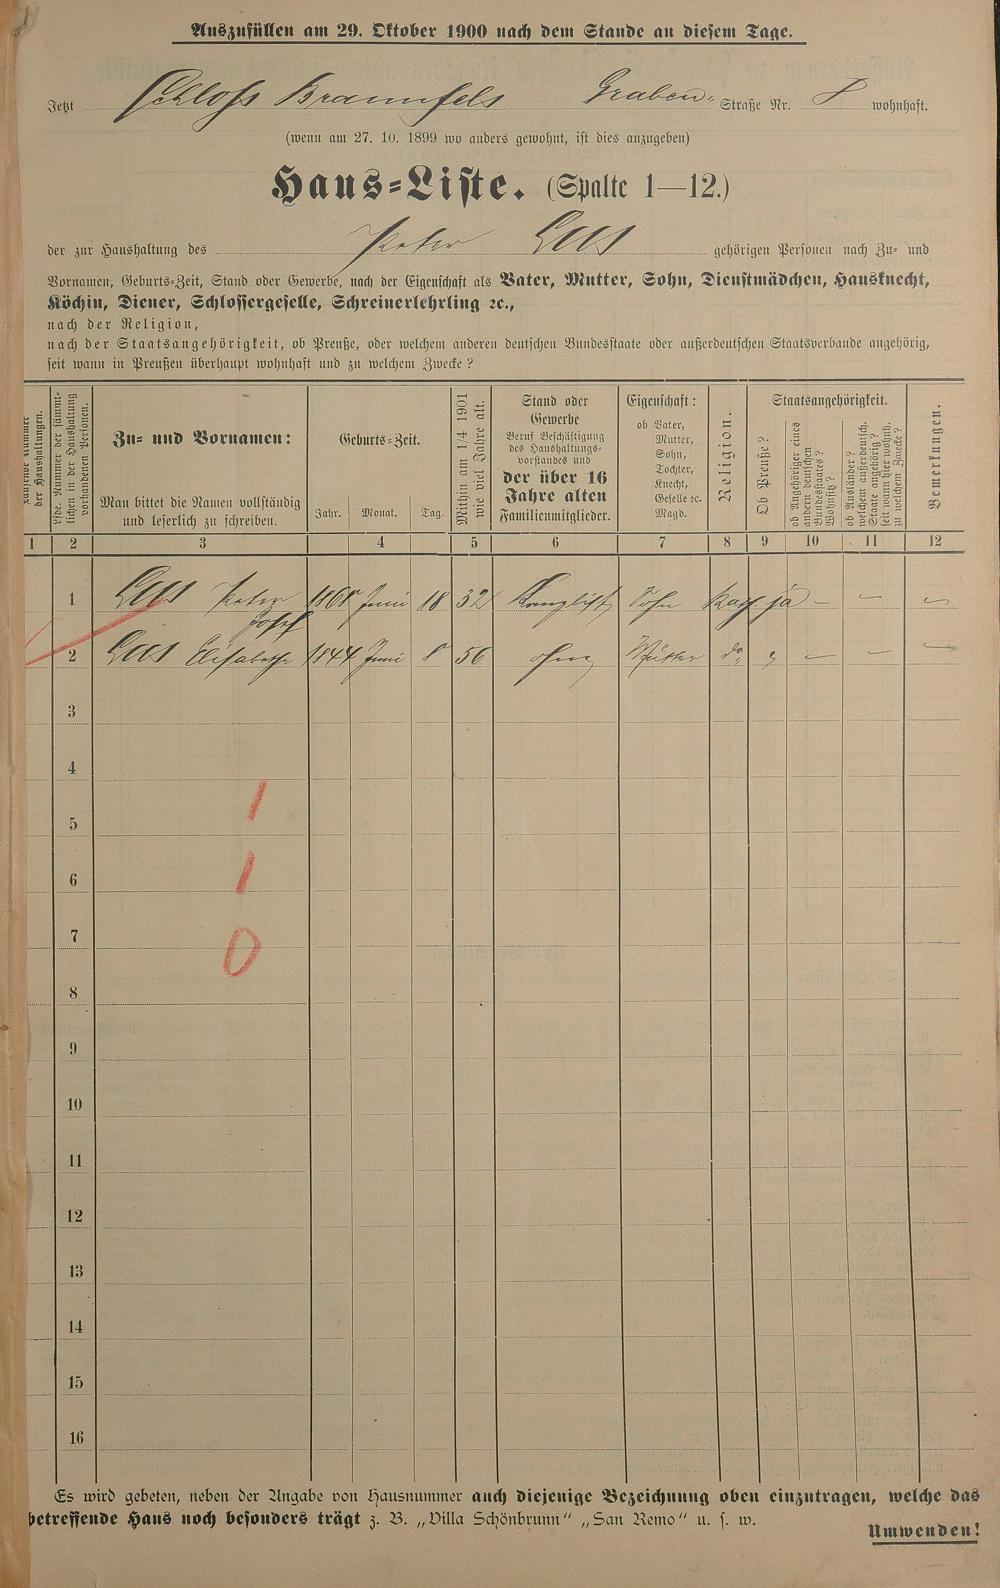 Auszufüllen am 29. Oktober 1900 nach dem Stande an diesem Tage.
Jetzt Schloss Braunfels Graben- Straße Nr. 8 wohnhaft.
(wenn am 27. 10. 1899 wo anders gewohnt, ist dies anzugeben)
Haus-Liste. (Spalte 1—12.)
der zur Haushaltung des Peter gehörigen Personen nach Zu- und
Vornamen, Geburts-Zeit, Stand oder Gewerbe, nach der Eigenschaft als Vater, Mutter, Sohn, Dienstmädchen, Hausknecht,
Köchin, Diener, Schlossergeselle, Schreinerlehrling ꝛc.,
nach der Religion,
nach der Staatsangehörigkeit, ob Preuße, oder welchem anderen deutschen Bundesstaate oder außerdeutschen Staatsverbande angehörig,
seit wann in Preußen überhaupt wohnhaft und zu welchem Zwecke?
Laufende Nummer
der Haushaltungen.
Lfde. Nummer der sämmt-
lichen in der Haushaltung
vorhandenen Personen.
Zu- und Vornamen:
Man bittet die Namen vollständig
und leserlich zu schreiben.
Geburts-Zeit.
Jahr. Monat. Tag.
Mithin am 1/4 1901
wie viel Jahre alt.
Stand oder
Gewerbe
Beruf Beschäftigung
des Haushaltungs-
vorstandes und
der über 16
Jahre alten
Familienmitglieder.
Eigenschaft:
ob Vater,
Mutter,
Sohn,
Tochter,
Knecht,
Geselle ꝛc.
Magd.
Religion.
Staatsangehörigkeit.
Ob Preuße?
ob Angehöriger eines
andern deutschen
Bundesstaates?
Wohnsitz?
ob Ausländer?
welchem außerdeutsch.
Staate angehörig?
seit wann hier wohnh.
zu welchem Zwecke?
Bemerkungen.
1 2 3 4 5 6 7 8 9 10 11 12
1 Peter 1868 Juni 18 32 Kanzlist Sohn Kath ja — — —
Josef
2 Elisabethe 1844 Juni 8 56 ohne Mutter do. " — — —
3
4
5
6
7
8
9
10
11
12
13
14
15
16
1
1
0
Es wird gebeten, neben der Angabe von Hausnummer auch diejenige Bezeichnung oben einzutragen, welche das
betreffende Haus noch besonders trägt z. B. „Villa Schönbrunn“ „San Remo“ u. s. w.
Umwenden!